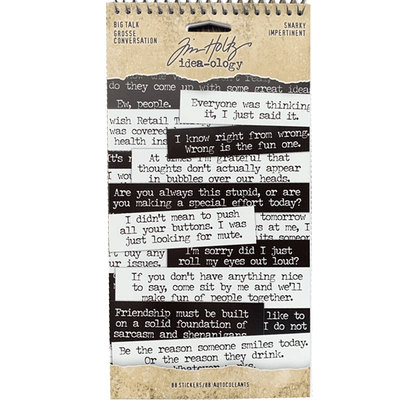 BIG TALK
GROSSE
CONVERSATION
SNARKY
IMPERTINENT
Tim Holtz
idea-ology
do they come up with some great ideas
Ew, people.
Everyone was thinking
it, I just said it.
wish Retail Therapy
was covered
health ins
I know right from wrong.
Wrong is the fun one.
It's
At times I'm grateful that
thoughts don't actually appear
in bubbles over our heads.
I wou
Are you always this stupid, or are
you making a special effort today?
I didn't mean to push
all your buttons. I was
just looking for mute.
tomorrow
ys at me, I
ts some
t buy any
ur issues.
I'm sorry did I just
roll my eyes out loud?
If you don't have anything nice
to say, come sit by me and we'll
make fun of people together.
Friendship must be built
on a solid foundation of
sarcasm and shenanigans.
like to
I do not
Be the reason someone smiles today.
Or the reason they drink.
Whatever works.
88 STICKERS/88 AUTOCOLLANTS